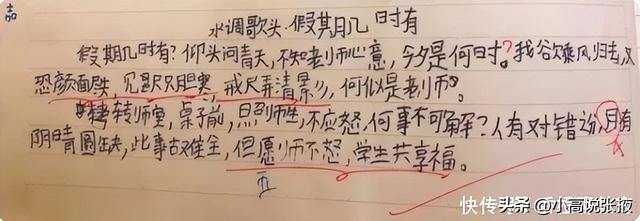 水调歌头·假期几时有
假期几时有?仰头问青天,不知老师心意,今夕是何时?我欲乘风归去,又
恐颜面跌,只胆寒,戒尺弄清影,何似是老师。
转师室,桌子前,照师生,不应怒,何事不可解?人有对错论,月有
阴晴圆缺,此事古难全,但愿师不怒,学生共享福。
快传头条 @小高说张掖